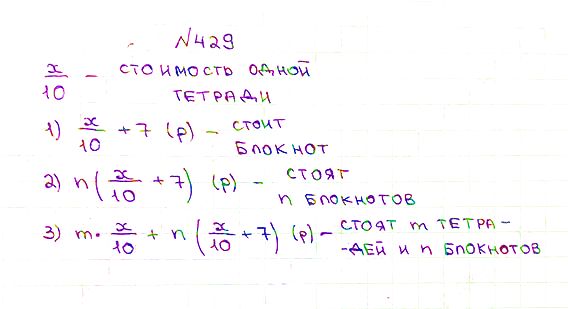 №429
x/10 – стоимость одной
тетради
1) x/10 + 7 (р) – стоит
блокнот
2) n(x/10 + 7) (р) – стоят
n блокнотов
3) m · x/10 + n(x/10 + 7) (р) – стоят m тетра-
-дей и n блокнотов